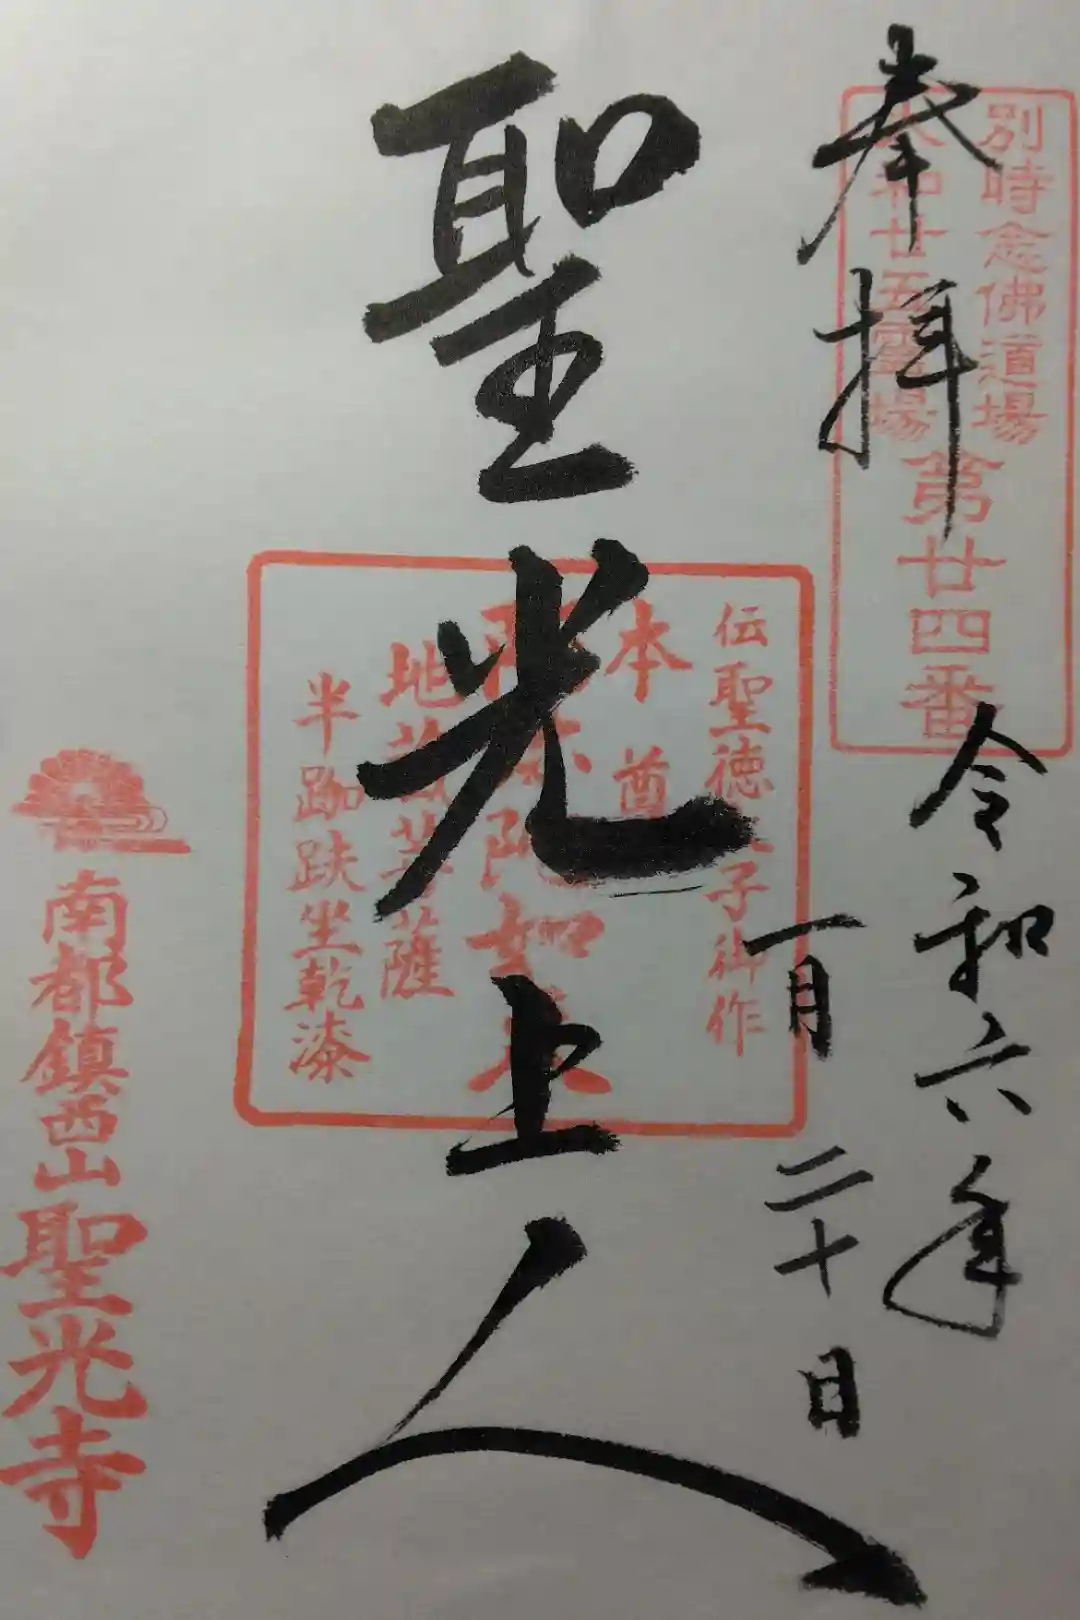 奉拝
別時念佛道場
大和廿五霊場
第廿四番
令和六年
一月二十日
聖光上人
伝聖徳太子御作
本尊
阿弥陀如来
地蔵菩薩
半跏趺坐乾漆
南都鎮西山聖光寺